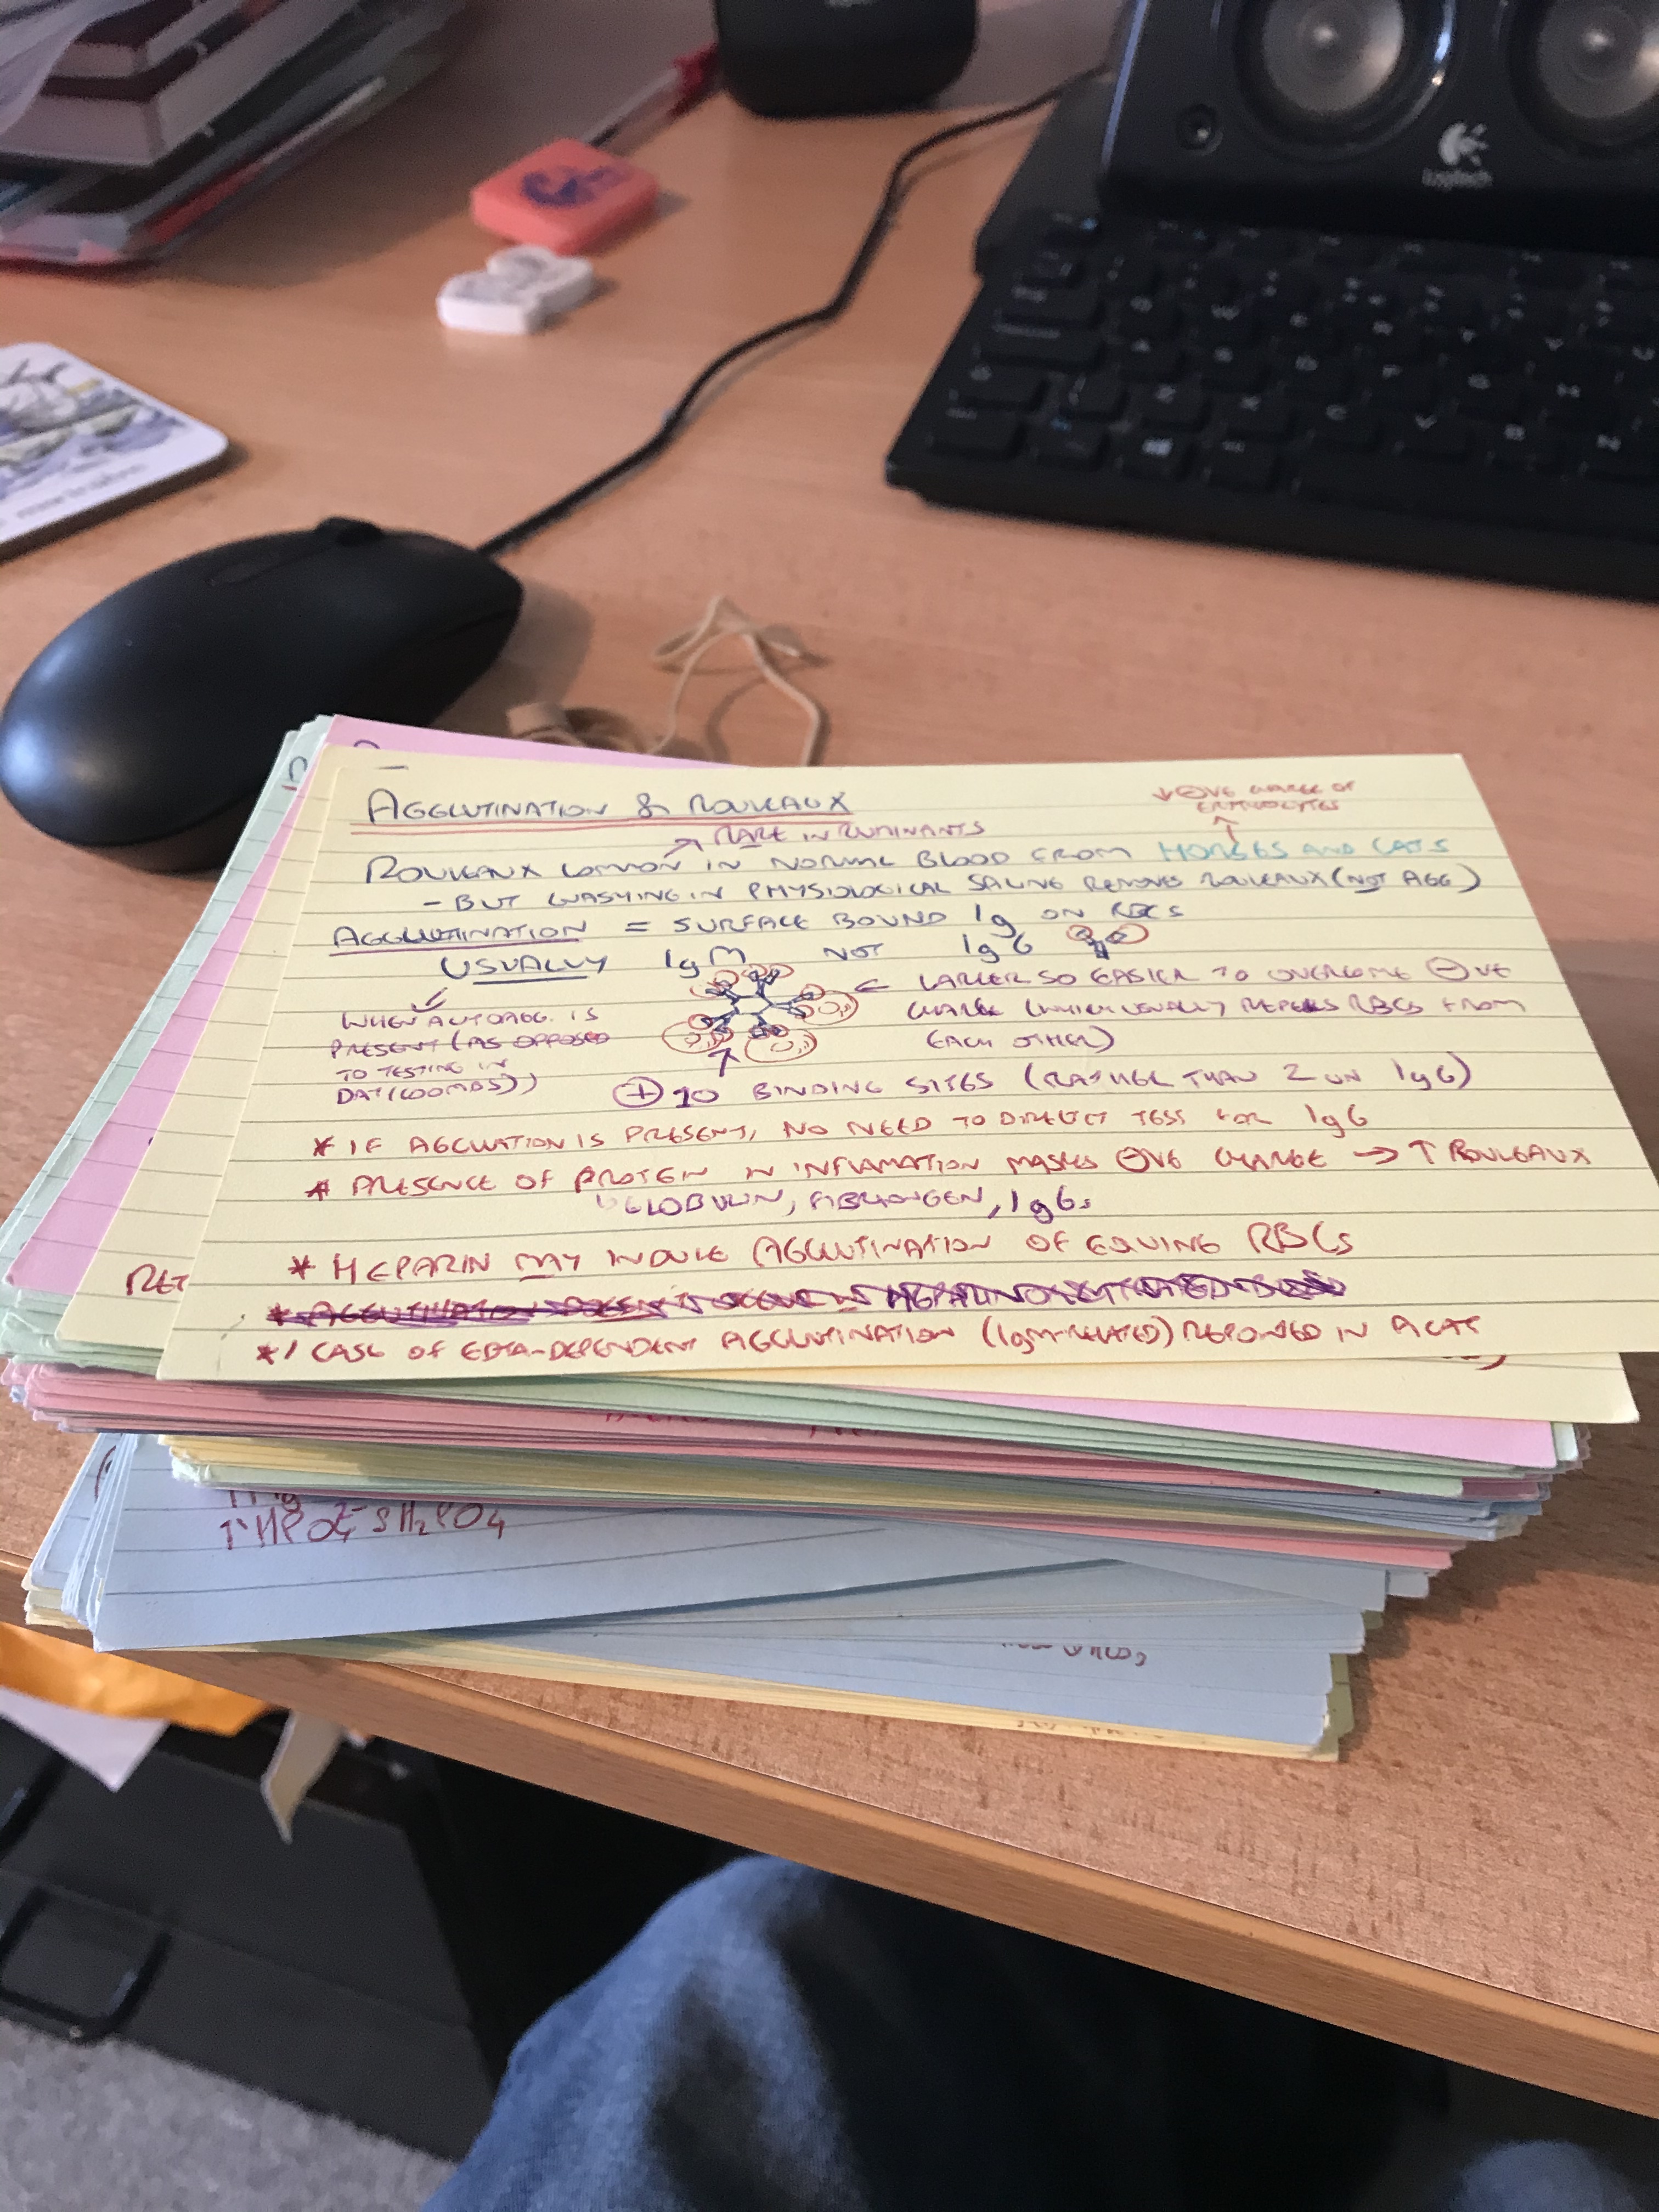 Logitech
AGGLUTINATION & ROULEAUX
↓ ⊖VE CHARGE OF
ERYTHROCYTES
RARE IN RUMINANTS
ROULEAUX COMMON IN NORMAL BLOOD FROM HORSES AND CATS
- BUT WASHING IN PHYSIOLOGICAL SALINE REMOVES ROULEAUX (NOT AGG)
AGGLUTINATION = SURFACE BOUND Ig ON RBCS
USUALLY IgM NOT IgG
← LARGER SO EASIER TO OVERCOME ⊖VE
CHARGE (WHICH USUALLY REPELS RBCS FROM
EACH OTHER)
WHEN AUTOAGG. IS
PRESENT (AS OPPOSED
TO TESTING IN
DAT (COOMBS))
⊕ 10 BINDING SITES (RATHER THAN 2 ON IgG)
* IF AGGLUATION IS PRESENT, NO NEED TO DIRECT TESS FOR IgG
* PRESENCE OF PROTEIN IN INFLAMATION MASKS ⊖VE CHARGE → ↑ ROULEAUX
GLOBULIN, FIBRINOGEN, IgGs
* HEPARIN MAY INDUCE AGGLUTINATION OF EQUINE RBCS
* 1 CASE OF EDTA-DEPENDENT AGGLUTINATION (IgM-RELATED) REPORTED IN A CAT
RET